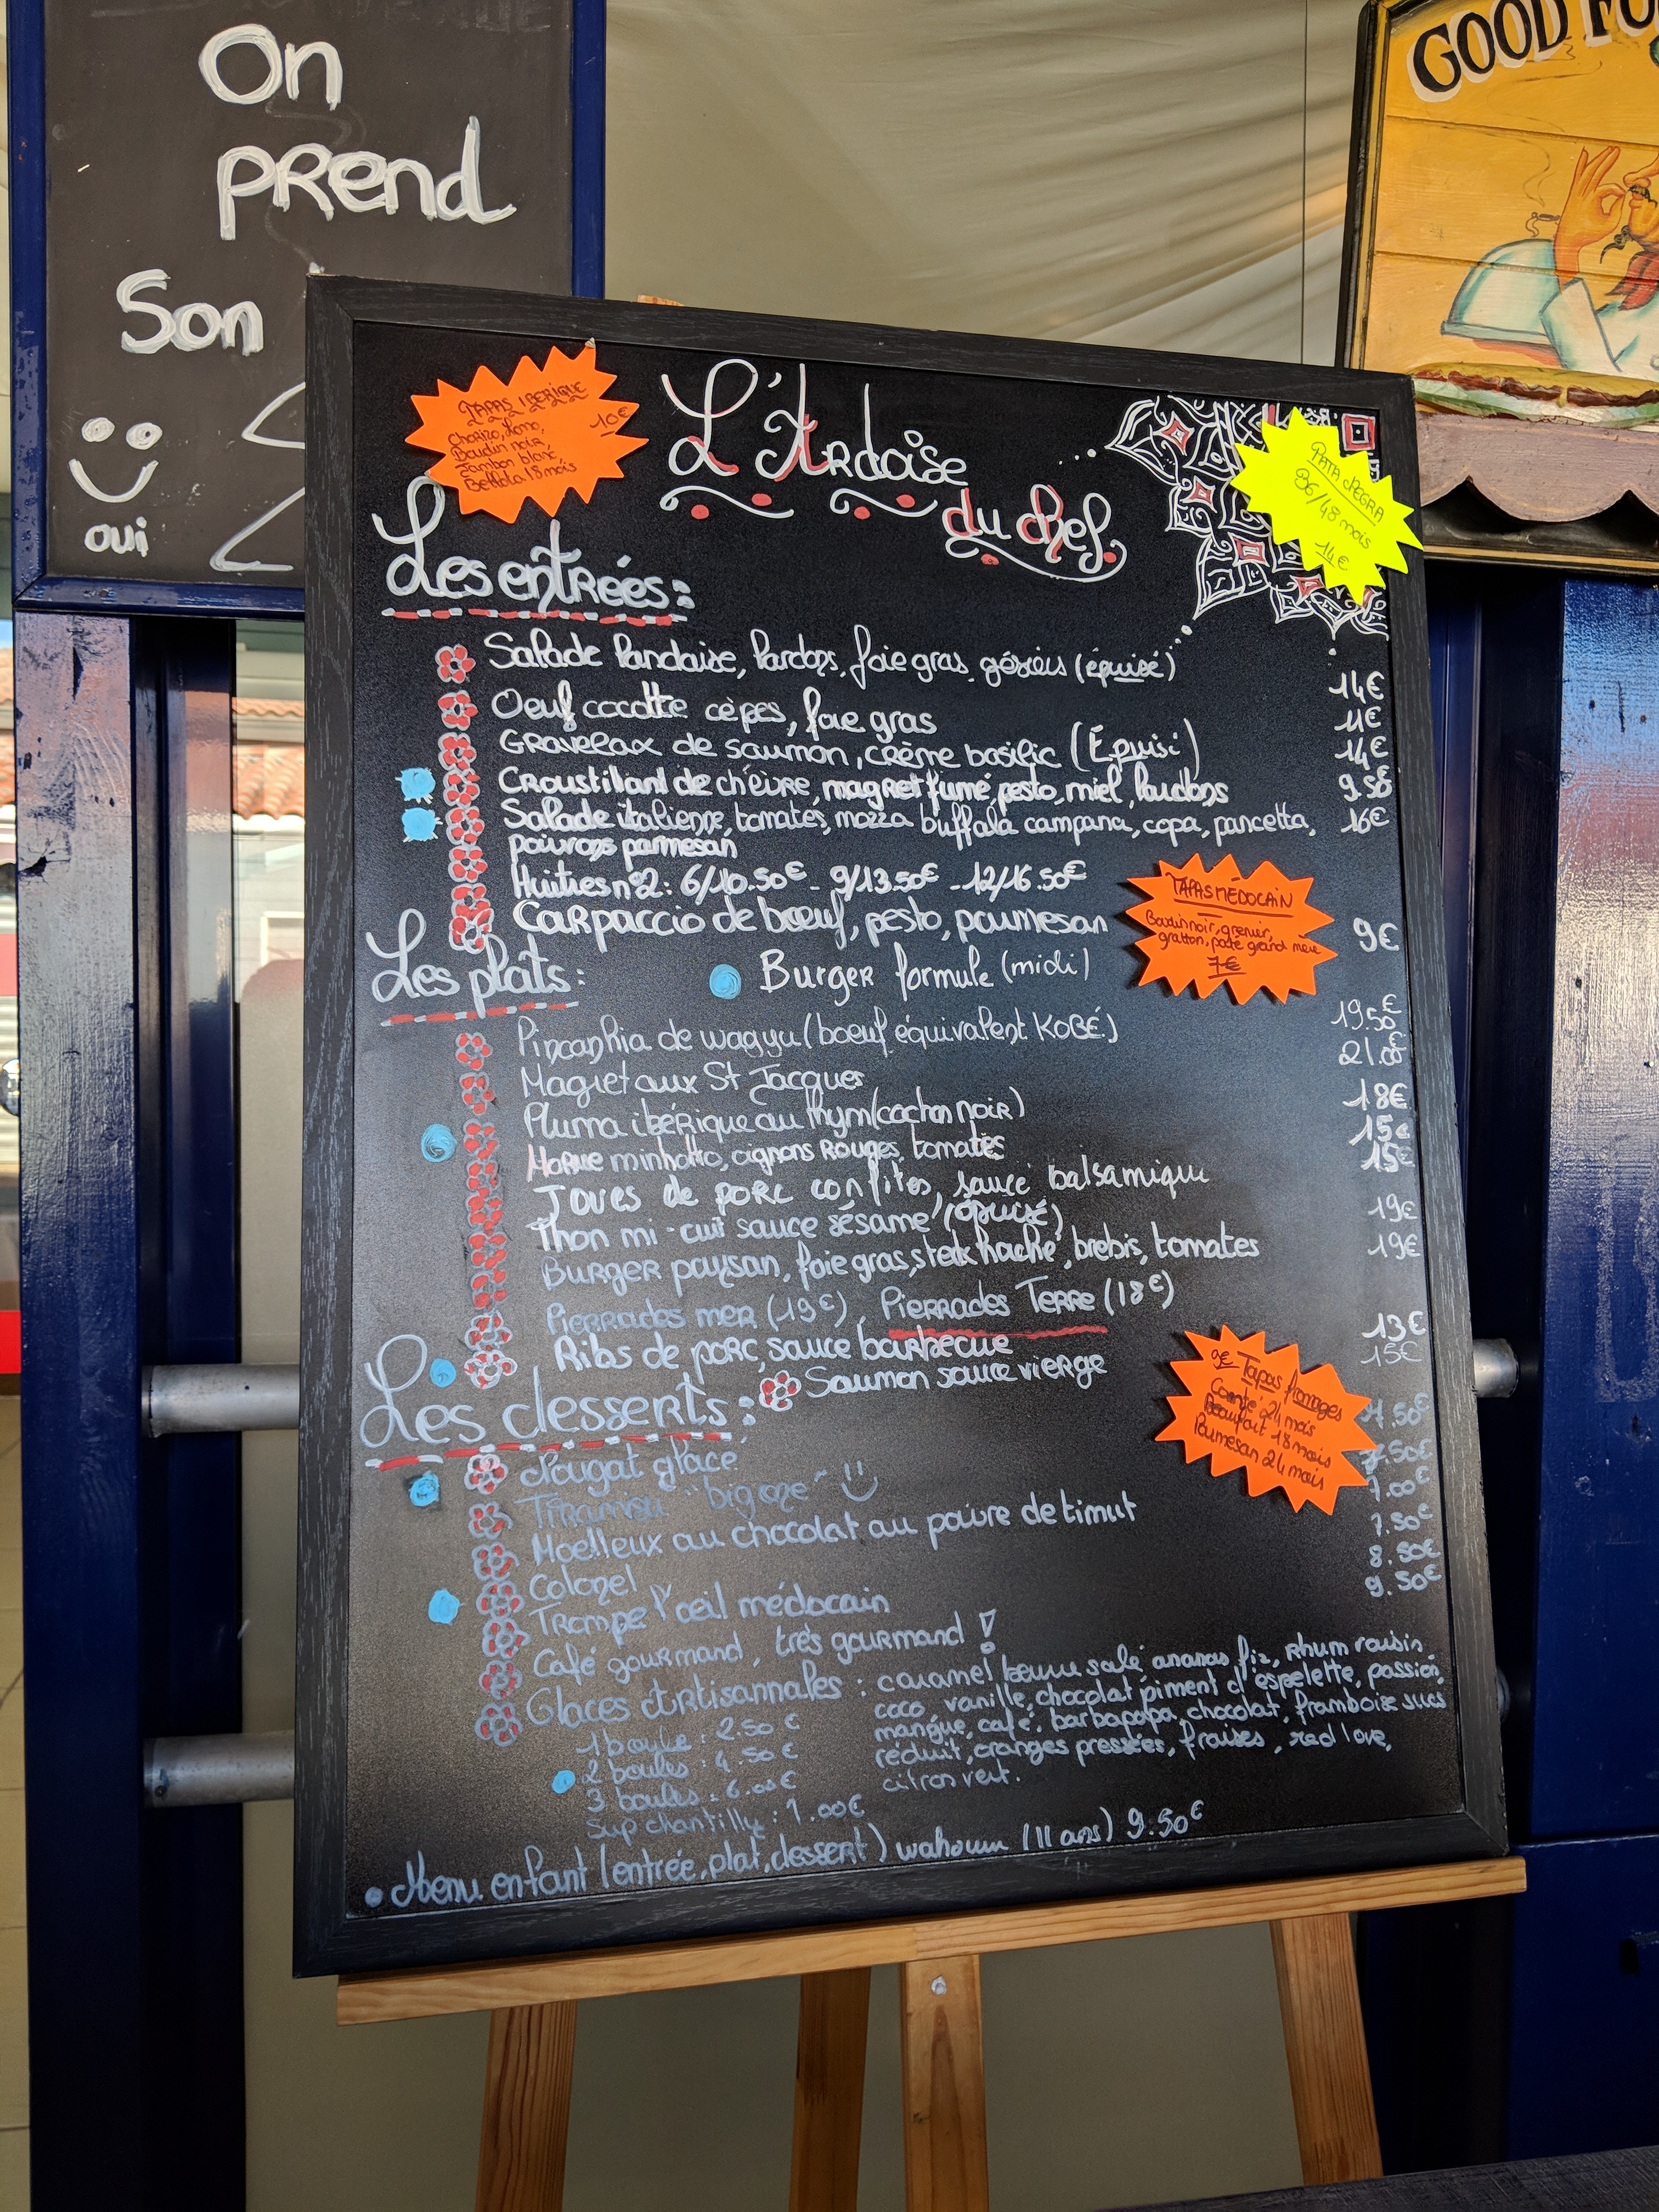 On
prend
Son
oui
GOOD FO
TAPAS IBERIQUE
10€
Chorizo, lomo,
Boudin noir,
Jambon blanc
Bellota 18 mois
L'Ardoise
du chef
PATA NEGRA
36/48 mois
14€
Les entrées:
Salade landaise, lardons, foie gras, gésiers (épuisé) 14€
Oeuf cocotte cèpes, foie gras 11€
Gravelax de saumon, crème basilic (Épuisé) 14€
Croustillant de chèvre, magret fumé, pesto, miel, lardons 9.50€
Salade italienne, tomates, mozza buffala campana, copa, pancetta, 16€
poivrons parmesan
Huîtres n°2: 6/10.50€ - 9/13.50€ - 12/16.50€
Carpaccio de boeuf, pesto, parmesan 9€
TAPAS MÉDOCAIN
Boudin noir, grenier,
gratton, pate grand mère
7€
Les plats:
Burger formule (midi)
Pincanhia de wagyu (boeuf équivalent KOBÉ) 19.50€
Magret aux St Jacques 21.00€
Pluma ibérique au thym (cochon noir) 18€
Morue minhotto, oignons rouges, tomates 15€
Joues de porc confites, sauce balsamique 15€
Thon mi-cuit sauce sésame (épuisé) 19€
Burger paysan, foie gras, steak haché, brebis, tomates 19€
Pierrades mer (19€), Pierrades Terre (18€)
Ribs de porc, sauce barbecue 13€
Saumon sauce vierge 15€
9€ Tapas fromages
Comté 24 mois
Beaufort 18 mois
Parmesan 24 mois
Les desserts:
Nougat glace 7.50€
Tiramisu "bigone" 7.50€
Moelleux au chocolat au poivre de timut 7.00€
Colonel 7.50€
Trompe l'oeil médocain 8.50€
Café gourmand, très gourmand! 9.50€
Glaces Artisannales: caramel beurre salé, ananas fiz, rhum raisin
coco, vanille, chocolat piment d'espelette, passion
mangue, café, barbapapa, chocolat, framboise sucs
réduit, oranges pressées, fraises, red love,
citron vert.
1 boule: 2.50€
2 boules: 4.50€
3 boules: 6.00€
Sup chantilly: 1.00€
Menu enfant (entrée, plat, dessert) wahouu (11 ans) 9.50€